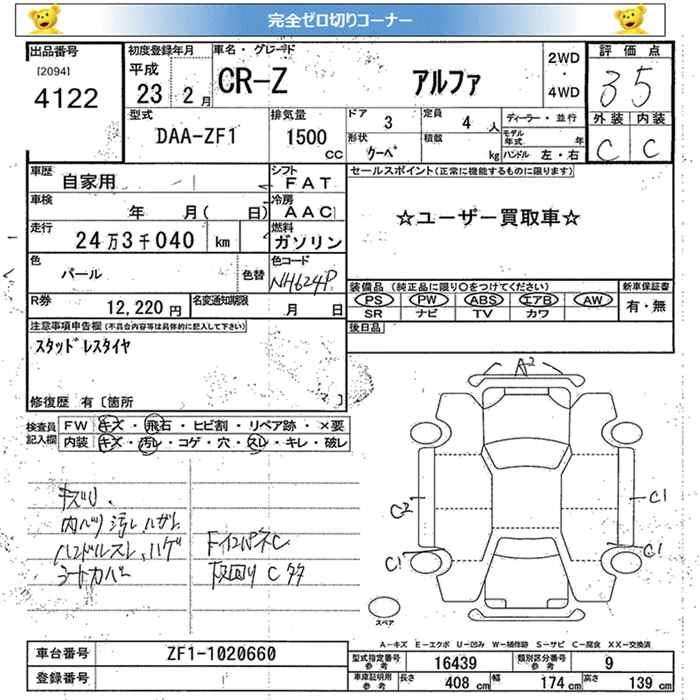 完全ゼロ切りコーナー
出品番号
[2094]
4122
初度登録年月
平成
23 2月
車名・グレード
CR-Z アルファ
2WD
・
4WD
評価点
35
外装 内装
C C
型式
DAA-ZF1
排気量
1500
CC
ドア
3
定員
4 人
形状
クーペ
積載
kg
ディーラー・並行
モデル年式 年
ハンドル 左・右
車歴
自家用
シフト
FAT
車検
年 月( 日)
冷房
AAC
走行
24万3千040 km
燃料
ガソリン
色
パール
色替
色コード
NH624P
R券
12,220 円
名変通知期限
月 日
セールスポイント(正常に機能するものに限ります)
☆ユーザー買取車☆
装備品 (純正品に限り○をつけてください)
PS PW ABS エアB AW
SR ナビ TV カワ
新車保証書
有・無
後日品
注意事項申告欄(不具合内容等は具体的に記入して下さい)
スタッドレスタイヤ
修復歴 有〔箇所 〕
検査員記入欄
FW キズ・飛石・ヒビ割・リペア跡・×要
内装 キズ・汚レ・コゲ・穴・スレ・キレ・破レ
キズU、
内ハリ汚レ、ハガレ
ハンドルスレ、ハゲ
シートカバー
下回りC
A2
C2
C1
C1
C1
スペア
A-キズ E-エクボ U-凹み W-補修跡 S-サビ C-腐食 XX-交換済
車台番号
ZF1-1020660
登録番号
型式指定番号
参考
16439
類別区分番号
参考
9
車庫証明用
参考
長さ 408 cm
幅 174 cm
高さ 139 cm